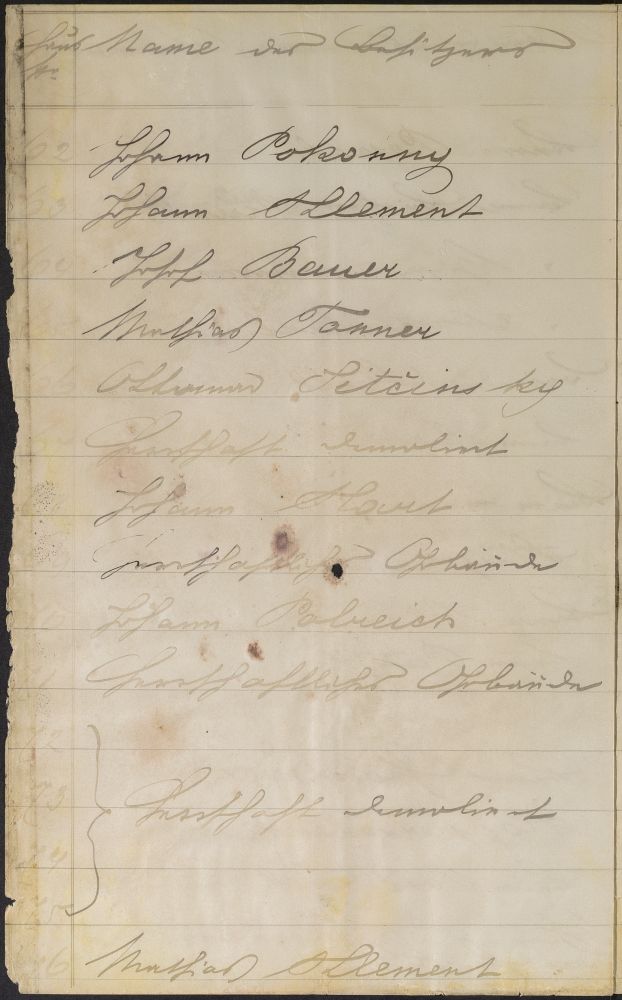 Haus Name des Besitzers
Nr.
62 Johann Pokorny
63 Johann Klement
64 Josef Bauer
Mathias Tanner
Ottomar
Herrschaft demoliert
Johann
Herrschaftliches Gebäude
Johann Palreich
Herrschaftliches Gebäude
72
73 Herrschaft demoliert
74
75
76 Mathias Klement